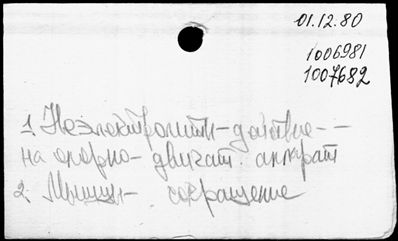 01.12.80
1006981
1007682
1. Неэлектролиты-действие--
на опорно-двигат. аппарат
2. Мышцы- сокращение